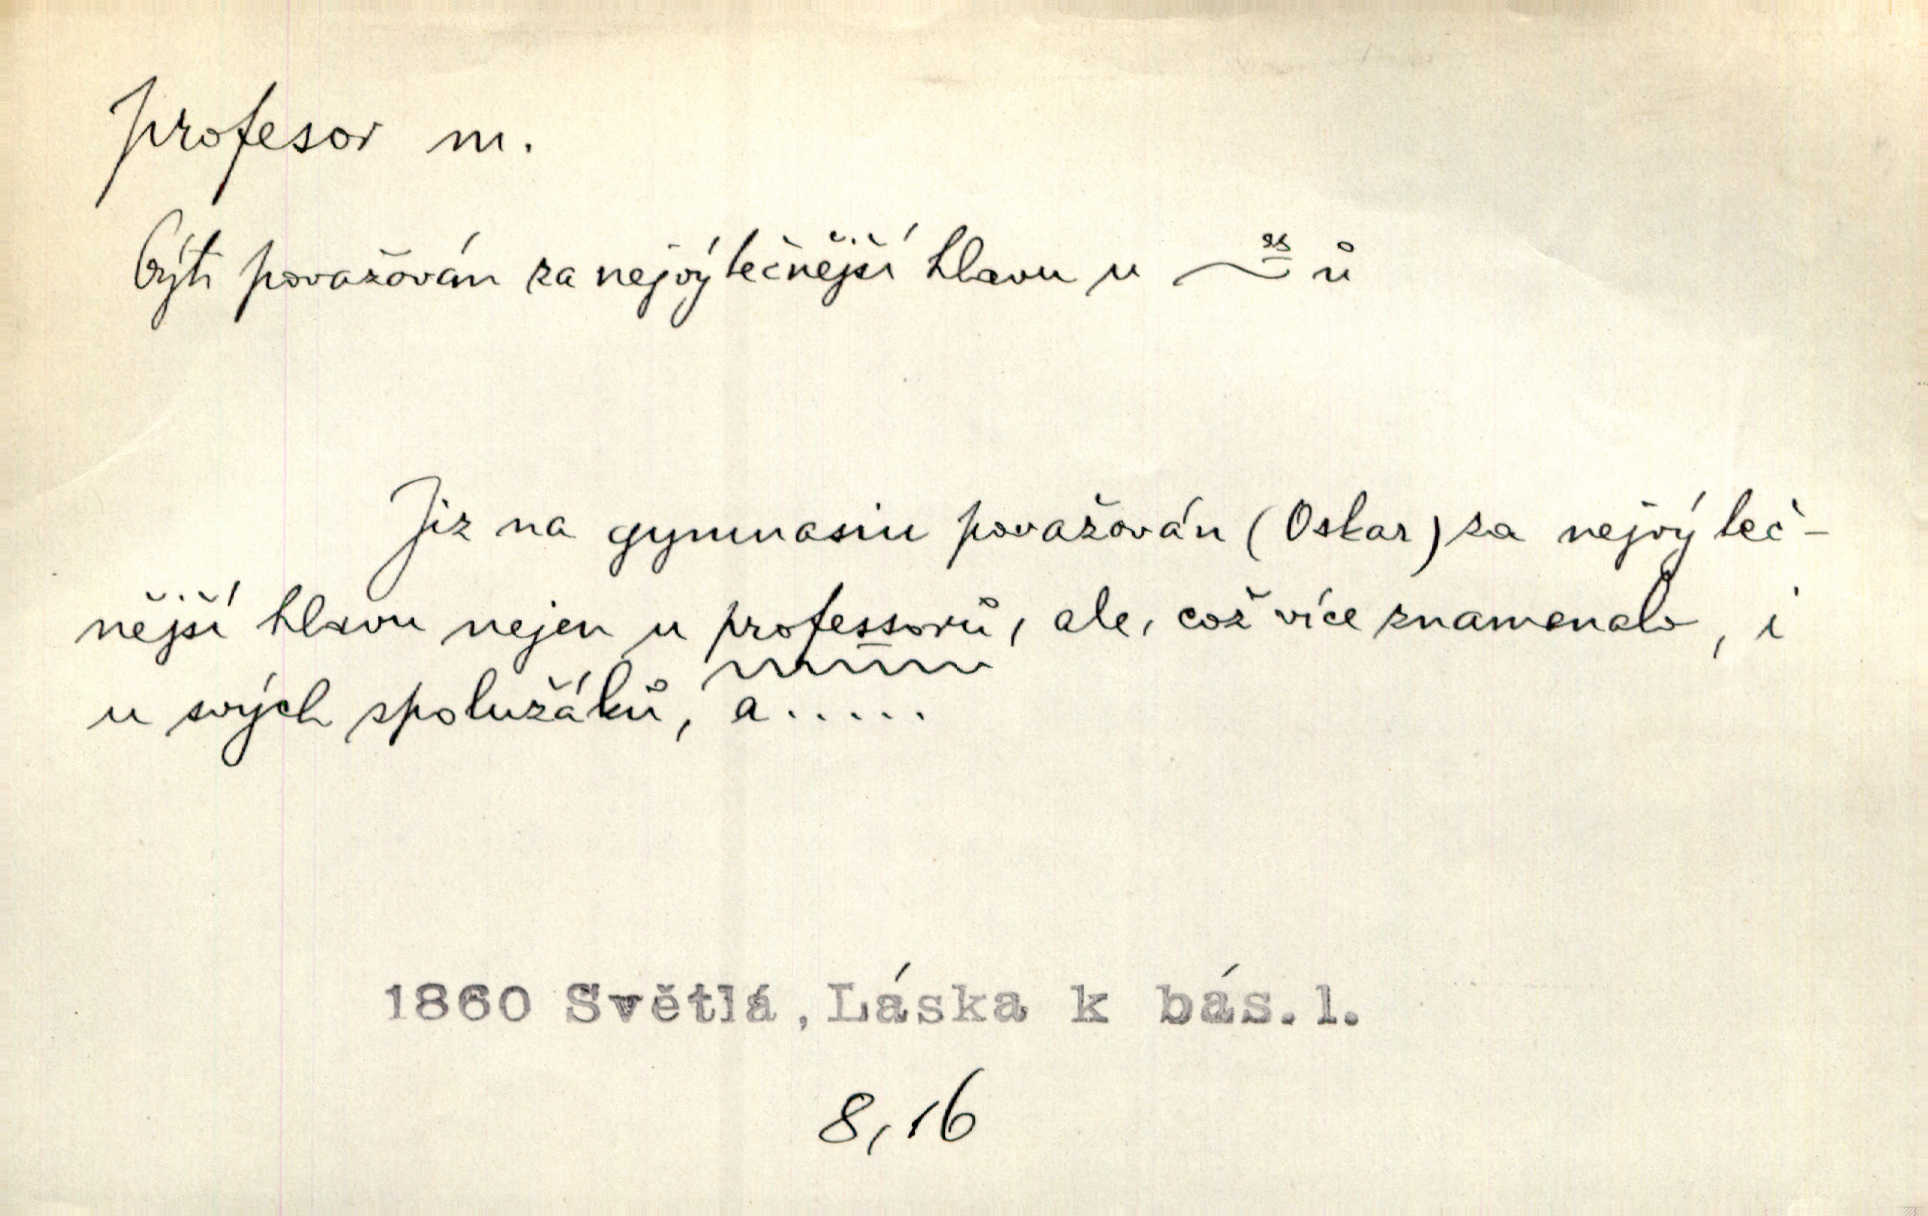 profesor m.
býti považován za nejvýtečnější hlavu u ~ss ů
Jiz na gymnasiu považován (Oskar) za nejvýteč-
nější hlavu nejen u professorů, ale, což více znamenalo, i
u svých spolužáků, a.....
1860 Světlá, Láska k bás. l.
8, 16